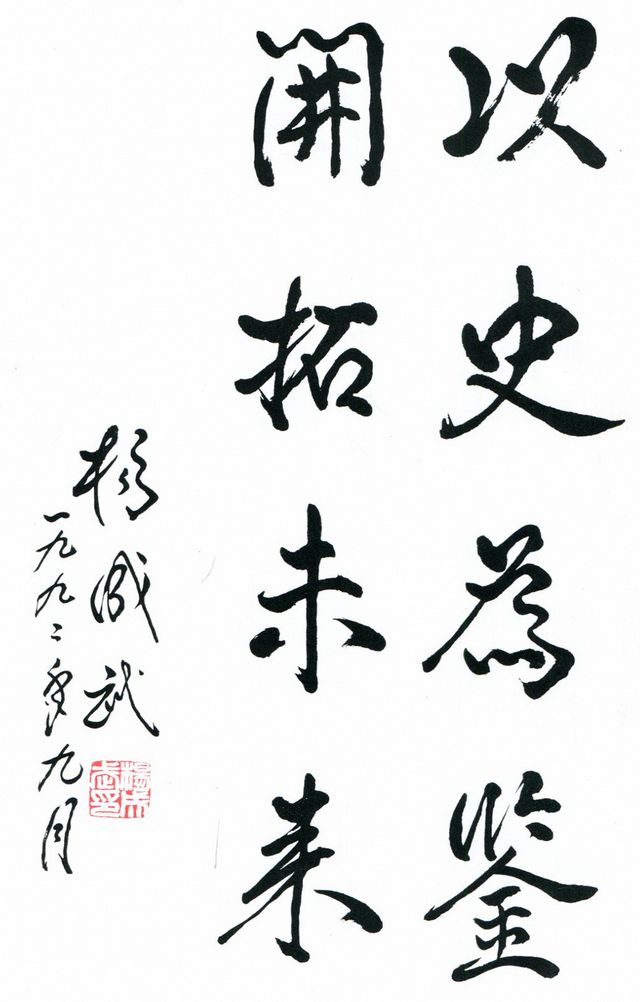 以史為鑒
開拓未来
楊成武
一九九二年九月
楊成武印